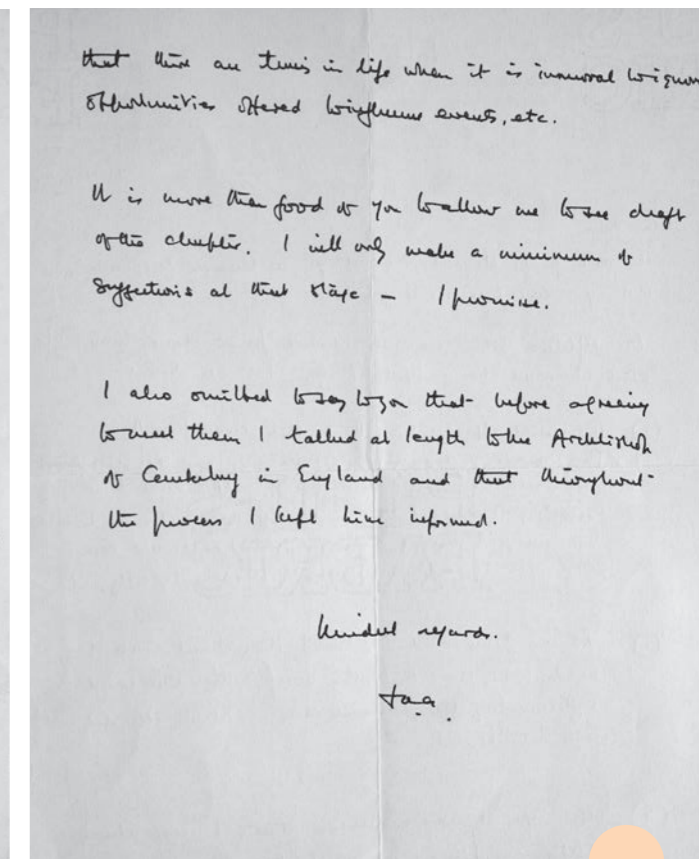 that there are times in life when it is immoral to ignore
opportunities offered to influence events, etc.
It is more than good of you to allow me to see draft
of the chapter. I will only make a minimum of
suggestions at that stage – I promise.
I also omitted to say to you that before agreeing
to meet them I talked at length to the Archbishop
of Canterbury in England and that throughout
the process I kept him informed.
Kindest regards.